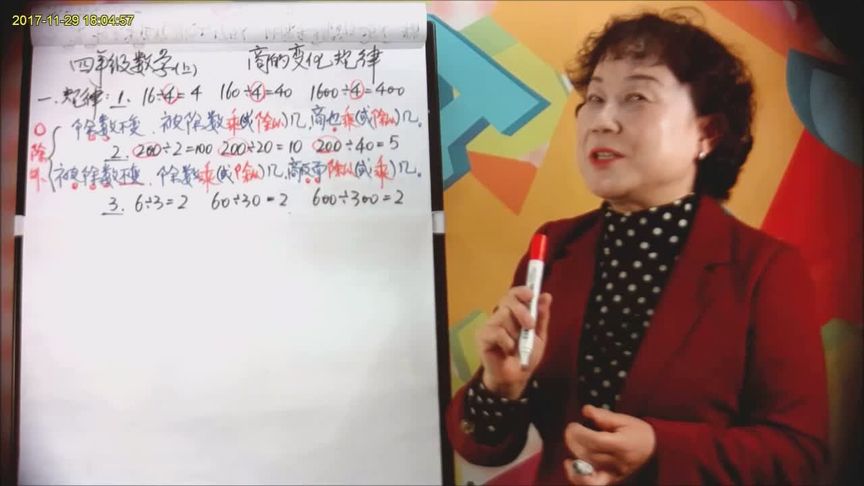 2017-11-29 18:04:57
四年级数学(上) 商的变化规律
一.规律:1. 16÷4=4 160÷4=40 1600÷4=400
除数不变.被除数乘(或除以)几,商也乘(或除以)几。
0除外
2. 200÷2=100 200÷20=10 200÷40=5
被除数不变.除数乘(或除以)几,商反而除以(或乘)几。
3. 6÷3=2 60÷30=2 600÷300=2